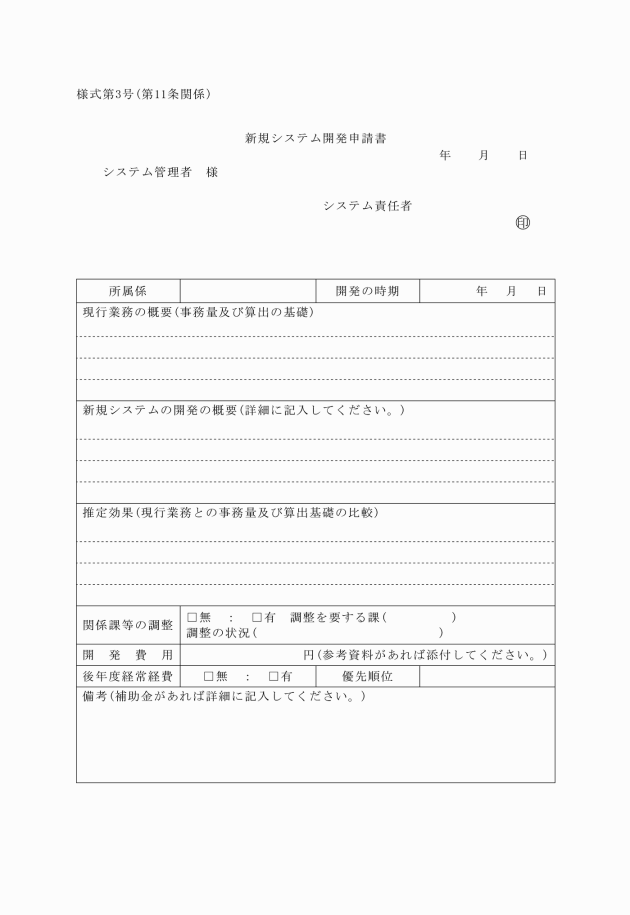 様式第3号(第11条関係)
新規システム開発申請書
年　　月　　日
システム管理者　様
システム責任者
㊞
所属係　開発の時期　年　月　日
現行業務の概要(事務量及び算出の基礎)
新規システムの開発の概要(詳細に記入してください。)
推定効果(現行業務との事務量及び算出基礎の比較)
関係課等の調整　□無　：　□有　調整を要する課(　　　　　)
調整の状況(　　　　　　　　　　　　　　)
開　発　費　用　円(参考資料があれば添付してください。)
後年度経常経費　□無　：　□有　優先順位
備考(補助金があれば詳細に記入してください。)